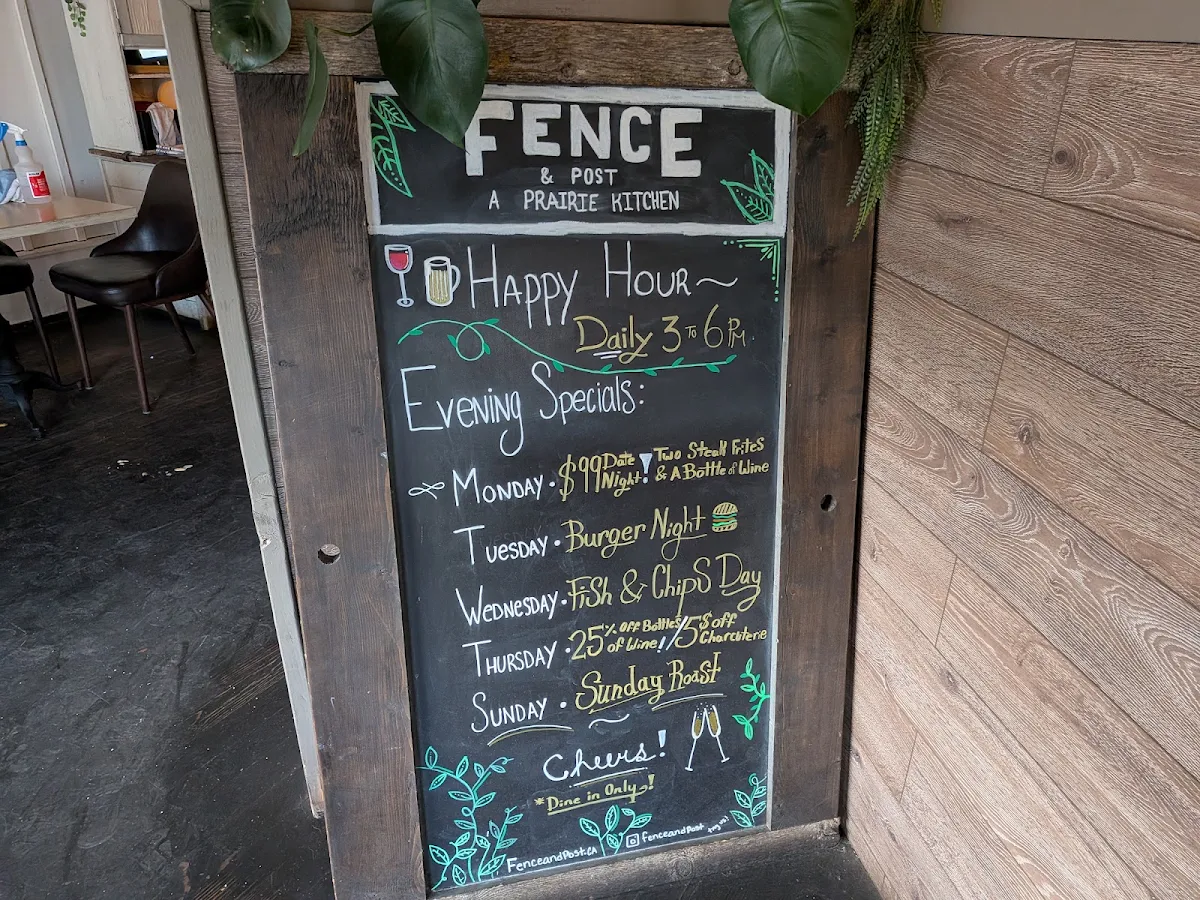 FENCE
& POST
A PRAIRIE KITCHEN
HAPPY HOUR~
Daily 3 TO 6 PM.
Evening Specials:
MONDAY · $99 Date Night! Two Steak Frites & A Bottle of Wine
TUESDAY · Burger Night
WEDNESDAY · Fish & Chips Day
THURSDAY · 25% off Bottles of Wine! / 5$ off Charcuterie
SUNDAY · Sunday Roast
Cheers!
*Dine in Only!
FenceandPost.CA
fenceandpost